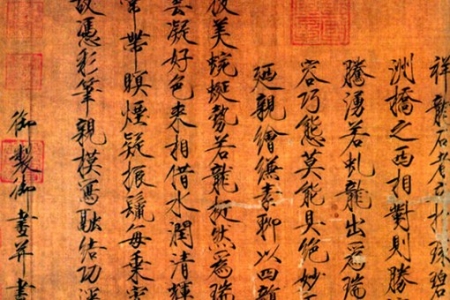 祥龍石者立於環碧
洲橋之西相對則勝
騰湧若虬龍出爲瑞
容巧態莫能具絶妙
廼親繪縑素聊以四韻
彼美蜿蜒勢若龍挺然爲瑞
雲凝好色来相借水潤清輝
常帶暝煙疑振鬣每乘宵
故憑彩筆親模寫融結功深
御製御畫并書